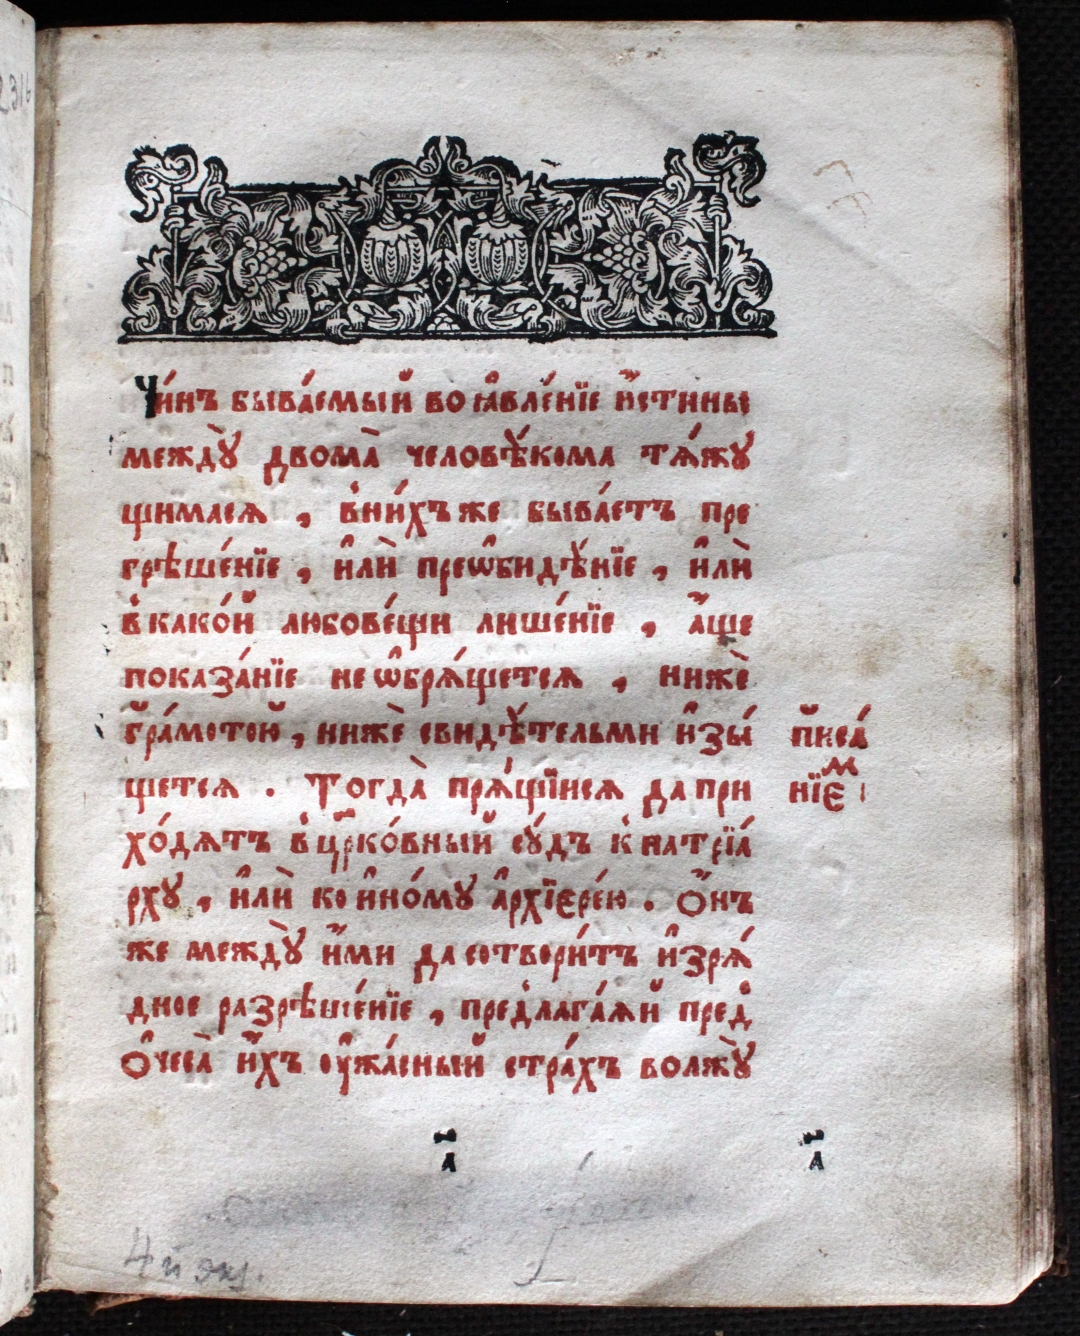 Чи́нъ быва́емый во ꙗ҆вле́нїе и҆́стины
междꙋ̀ двома̀ человѣ́кома тѧ́жꙋ
щимасѧ , в̾ни́хъже быва́етъ пре
грѣше́нїе , и҆лѝ преѡ҆бидѣ́нїе , и҆лѝ
в̾како́й любове́щи лише́нїе , а҆́ще
показа́нїе не ѡ҆брѧ́щетсѧ , нижѐ
гра́мотою , нижѐ свидѣ́тельми и҆зы́
щетсѧ . Тогда̀ прѧ́щїисѧ да при
хо́дѧтъ в̾ цр҃ко́вный сꙋ́дъ к̾ патрїа́
рхꙋ , и҆лѝ ко и҆но́мꙋ а҆рхїере́ю . Ѻ҆́нъ
же междꙋ̀ и҆́ми да сотвори́тъ и҆зрѧ́
дное разрѣше́нїе , пред̾лага́ѧй пред̾
ѻ҆чеса̀ и҆́хъ ᲂу҆жа́сный стра́хъ во лжꙋ̀
писа́
нїеⷨ
а҃ а҃
4й экз.